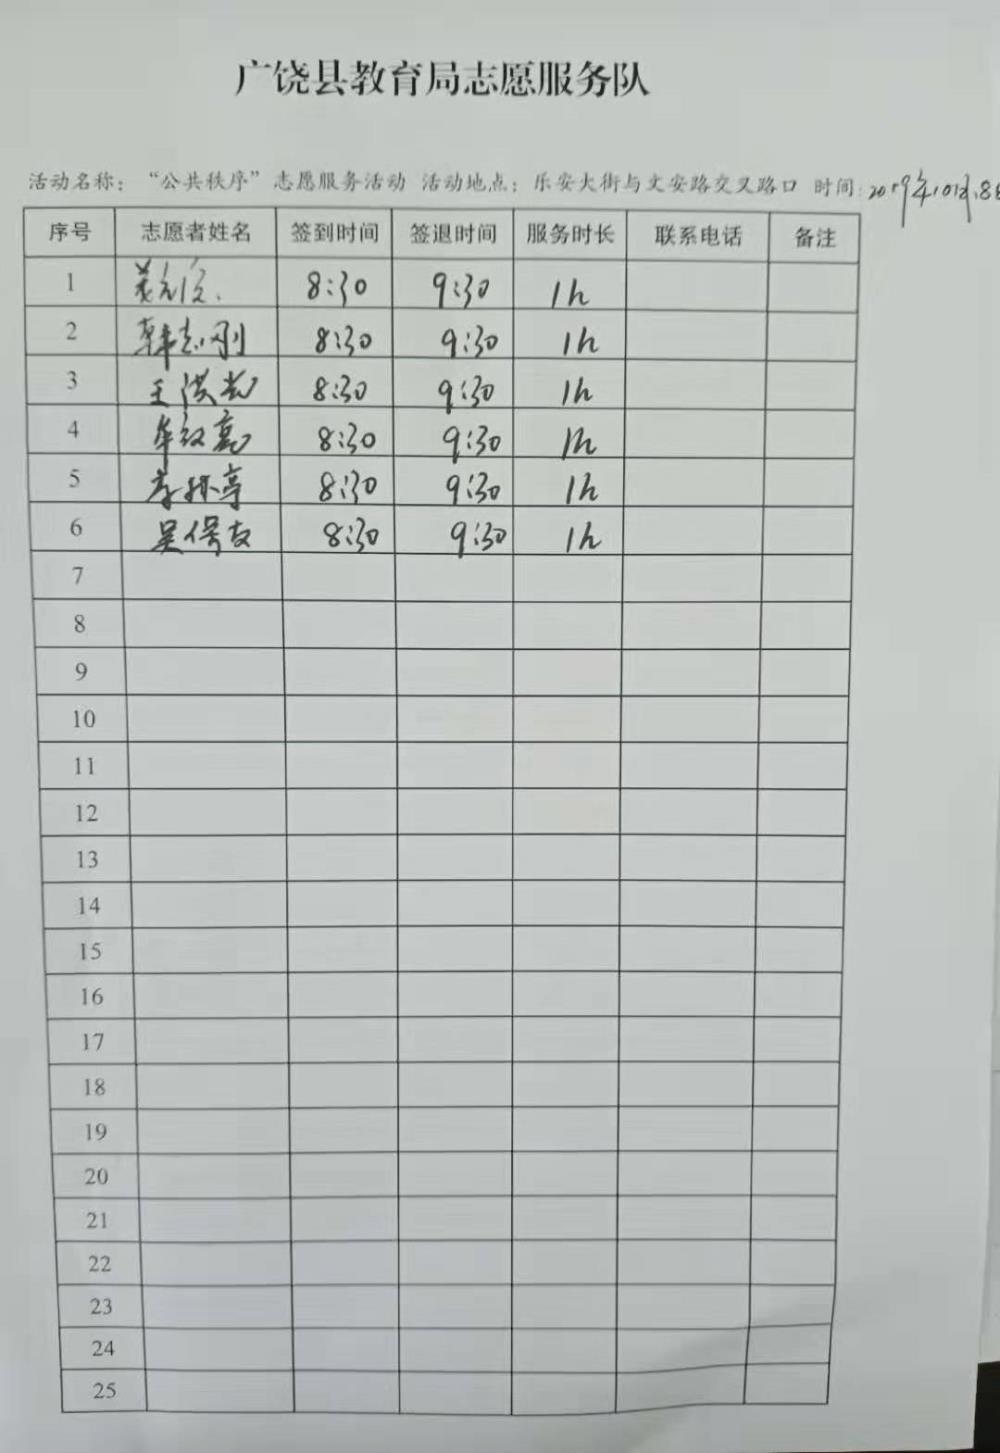 广饶县教育局志愿服务队
活动名称：“公共秩序”志愿服务活动 活动地点：乐安大街与文安路交叉路口 时间：2019年10月8日
序号 志愿者姓名 签到时间 签退时间 服务时长 联系电话 备注
1 8:30 9:30 1h
2 韩志刚 8:30 9:30 1h
3 王洪志 8:30 9:30 1h
4 8:30 9:30 1h
5 8:30 9:30 1h
6 吴保友 8:30 9:30 1h
7
8
9
10
11
12
13
14
15
16
17
18
19
20
21
22
23
24
25